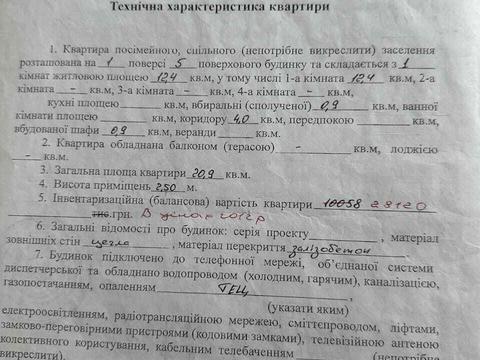 Технічна характеристика квартири
1. Квартира посімейного, спільного (непотрібне викреслити) заселення
розташована на 1 поверсі 5 поверхового будинку та складається з 1
кімнат житловою площею 12,4 кв.м, у тому числі 1-а кімната 12,4 кв.м, 2-а
кімната - кв.м, 3-а кімната - кв.м, 4-а кімната - кв.м,
кухні площею кв.м, вбиральні (сполученої) 0,9 кв.м, ванної
кімнати площею кв.м, коридору 4,0 кв.м, передпокою кв.м,
вбудованої шафи 0,9 кв.м, веранди кв.м.
2. Квартира обладнана балконом (терасою) - кв.м, лоджією
- кв.м.
3. Загальна площа квартири 20,9 кв.м.
4. Висота приміщень 2,50 м.
5. Інвентаризаційна (балансова) вартість квартири 10058 28120
тис.грн. В цінах
6. Загальні відомості про будинок: серія проекту , матеріал
зовнішніх стін цегла , матеріал перекриття залізобетон .
7. Будинок підключено до телефонної мережі, об'єднаної системи
диспетчерської та обладнано водопроводом (холодним, гарячим), каналізацією,
газопостачанням, опаленням ТЕЦ ,
(указати яким)
електроосвітленням, радіотрансляційною мережею, сміттєпроводом, ліфтами,
замково-переговорними пристроями (кодовими замками), телевізійною антеною
колективного користування, кабельним телебаченням (непотрібне
викреслити).